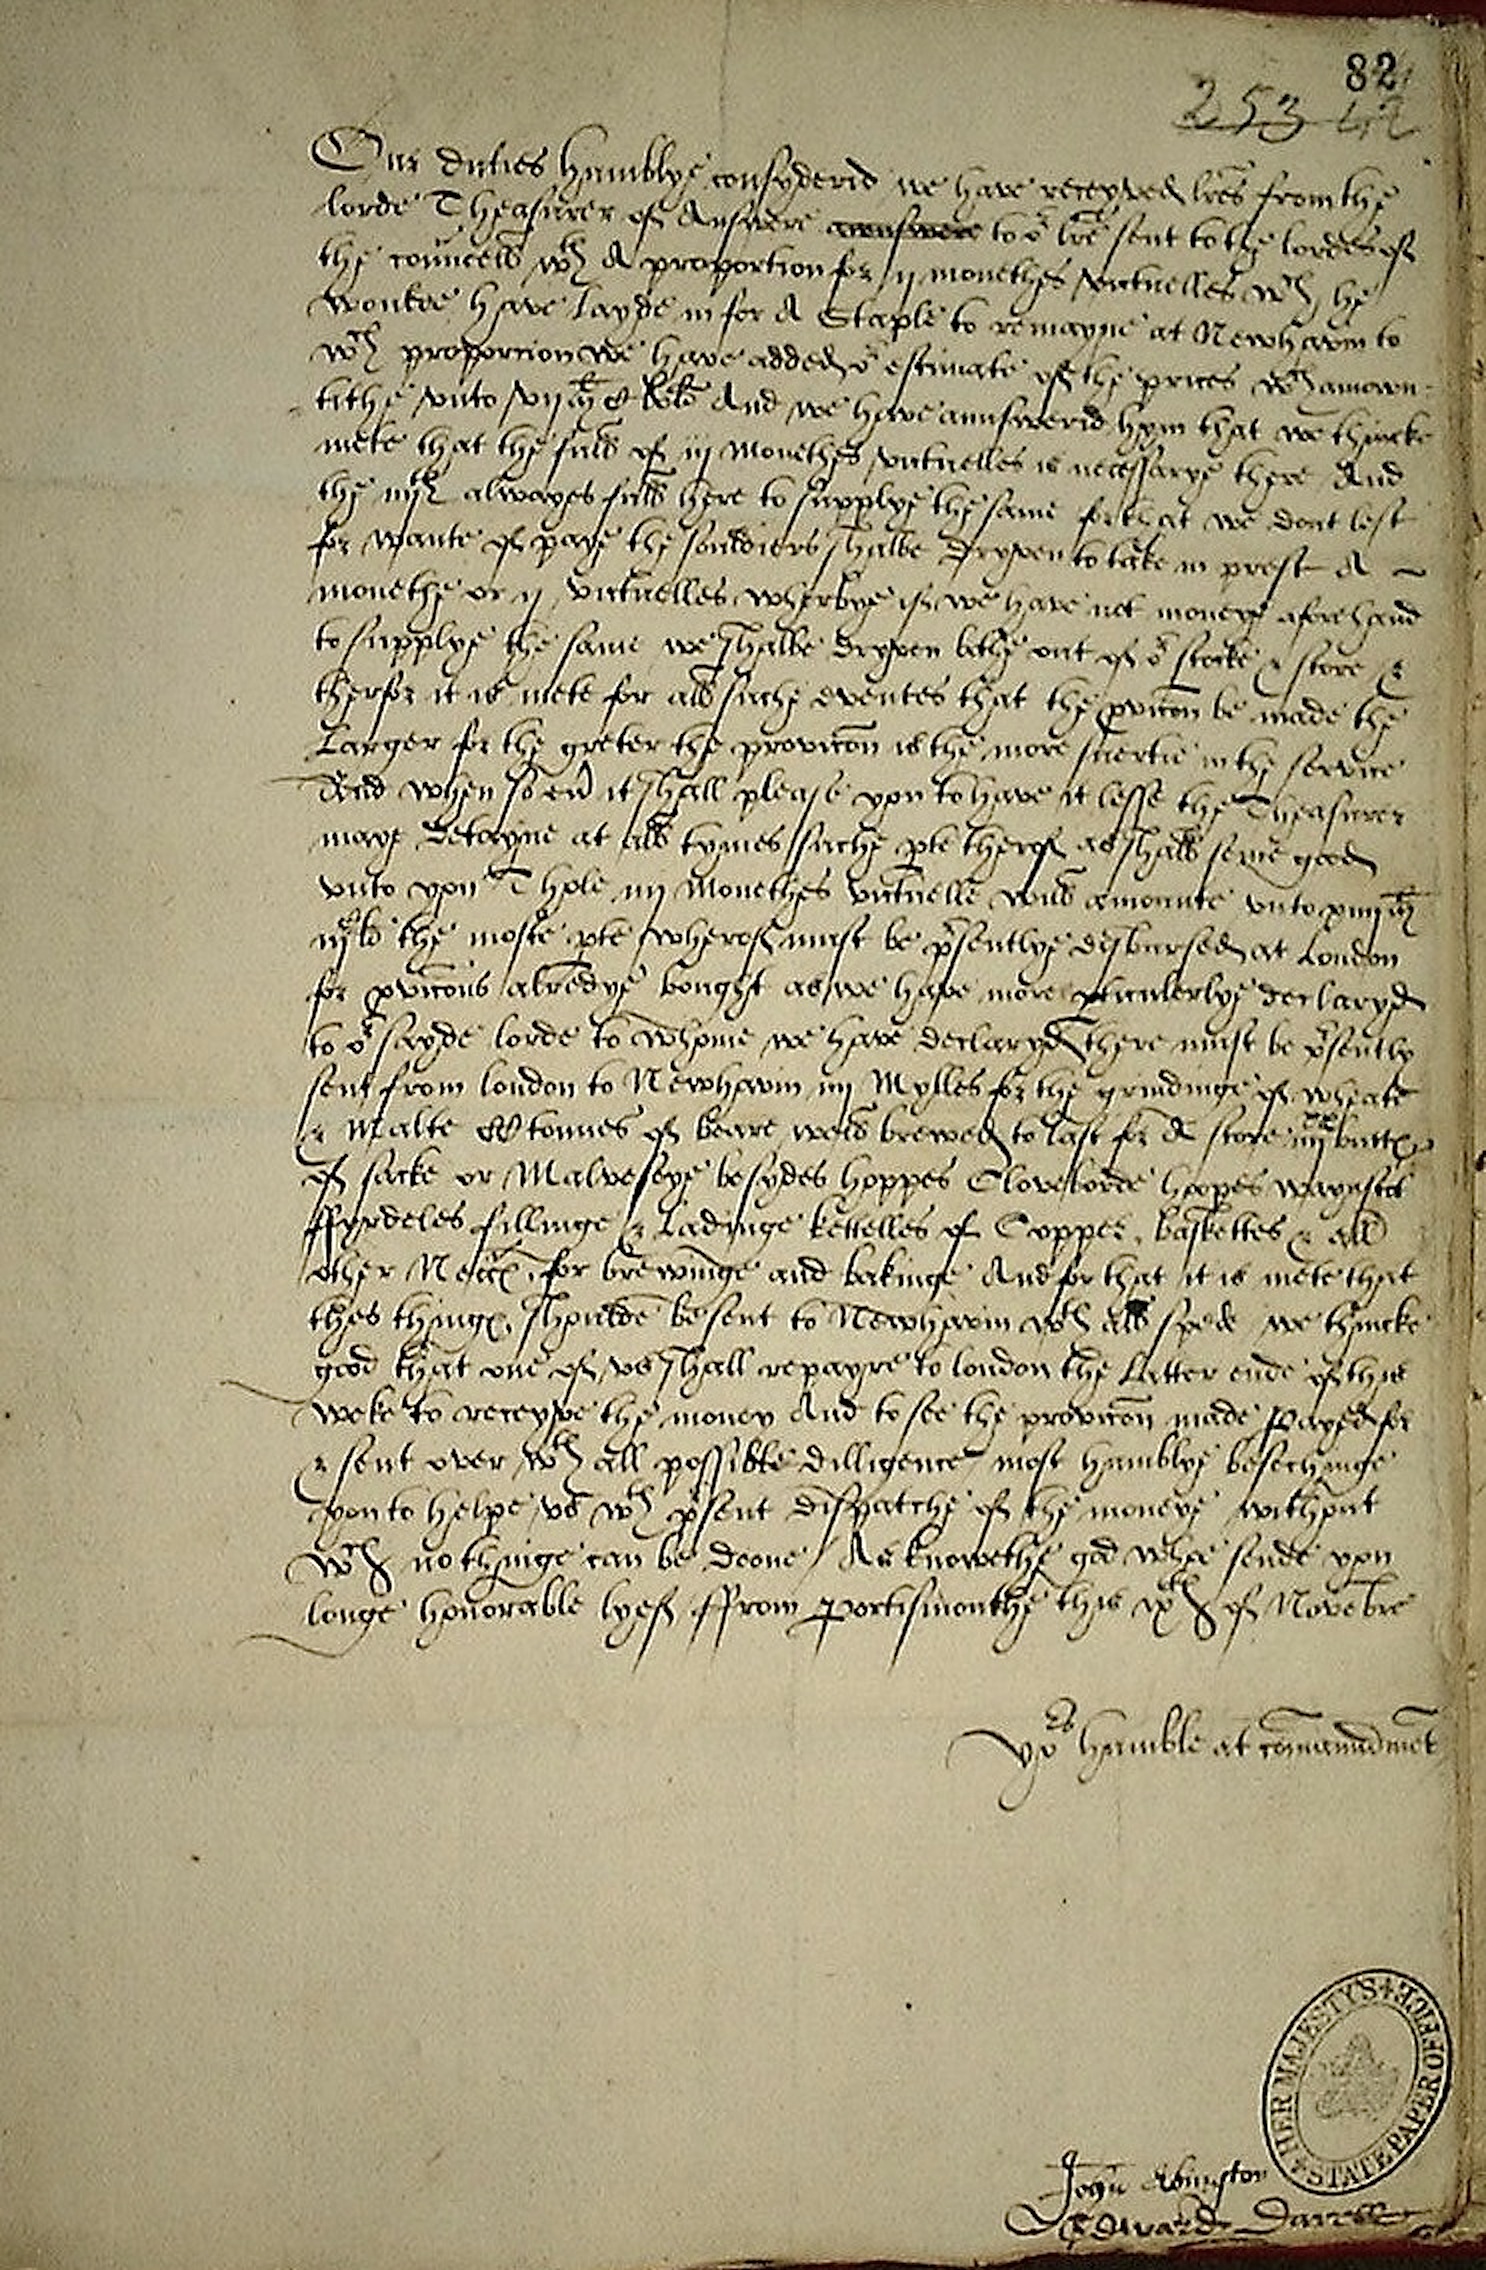 82
253
Our duties humblye consyderid we have receyved lres from the
lorde Theasurer of Answere to or lre sent to the lordes of
the councell wth A proportion for ij monethes victuelles wch he
wouldee have layde in for A Staple to remayne at Newhavin to
wch proporcion we have added or estimate of the prices wch amown-
tithe unto And we have aunswerid hym that we thincke
mete that the full of iij Monethes victuelles is necessarye there And
the iiijth alwayes full here to supplye the same for that we dout lest
for wante of paye the souldiers shalbe dryven to take in prest A
monethe or ij victuelles wherbye if we have not moneye aforehand
to supplye the same we shalbe dryven bothe out of or stocke & store &
therfor it is mete for all suche eventes that the pvicon be made the
Larger for the greter the provicon is the more suertie in the service
And when so evr it shall please you to have it lesse the Theasurer
maye detayne at all tymes suche pte therof as shall seme good
unto you Thole iiij Monethes victuelle will amounte unto
the moste pte wherof must be psentlye disbursed at London
for pvicons alredye bought as we have more pticulerlye declaryd
to or sayde lorde to whome we have declaryd there must be psently
sent from london to Newhavin iiij Mylles for the grindinge of wheate
& Malte tonnes of beare well brewed to last for A store buttes
of sacke or Malveseye besydes hoppes Clovborde hoopes waynscot
ffyrdeles fillinge & Ladinge kettelles of Copper, baskettes & all
other for brewinge and bakinge And for that it is mete that
thes thinges shoulde be sent to Newhavin wth all spede we thincke
good that one of us shall repayre to london the Latter ende of this
weke to receyve the money And to see the provicon made payed for
& sent over wth all possible dilligence most humblye besechinge
you to helpe us wth psent dispatche of the moneye without
wch nothinge can be doone As knowethe god whoe sende you
longe honorable lyef ffrom portismouthe this ixth of Novebre
Yors humble at comaundmet
HER MAJESTY'S STATE PAPER OFFICE
John Abington
Edward Darrell